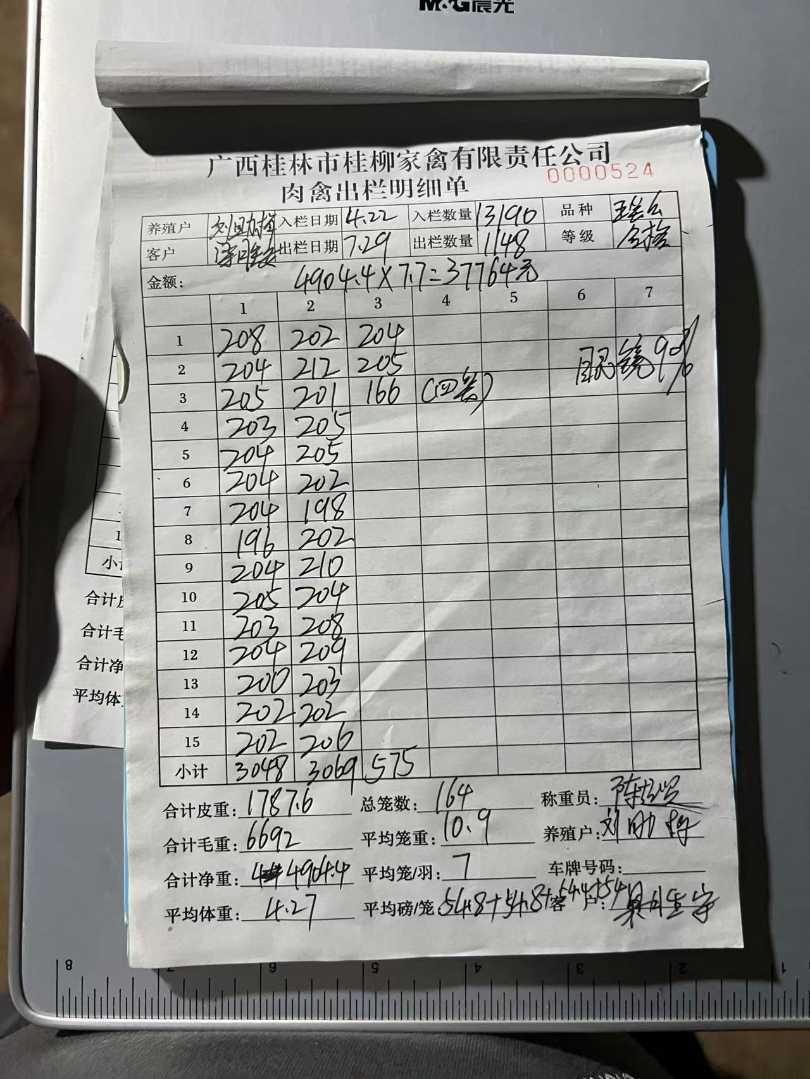 M&G晨光
广西桂林市桂柳家禽有限责任公司
肉禽出栏明细单 0000524
养殖户 入栏日期 4.22 入栏数量 13190 品种
客户 出栏日期 7.29 出栏数量 1148 等级
金额: 4904.4×7.7=37764元
1 2 3 4 5 6 7
1 208 202 204
2 204 212 205 90%
3 205 201 166 (四笼)
4 203 205
5 204 205
6 204 202
7 204 198
8 196 202
9 204 210
10 205 204
11 203 208
12 204 209
13 200 203
14 202 202
15 202 206
小计 3048 3069 575
合计皮重: 1787.6 总笼数: 164 称重员:
合计毛重: 6692 平均笼重: 10.9 养殖户:
合计净重: 4904.4 平均笼/羽: 7 车牌号码:
平均体重: 4.27 平均磅/笼 54.8+54.8+54.4+54 客户:
小计
合计皮
合计毛
合计净
平均体
8 7 6 5 4 3 2 1